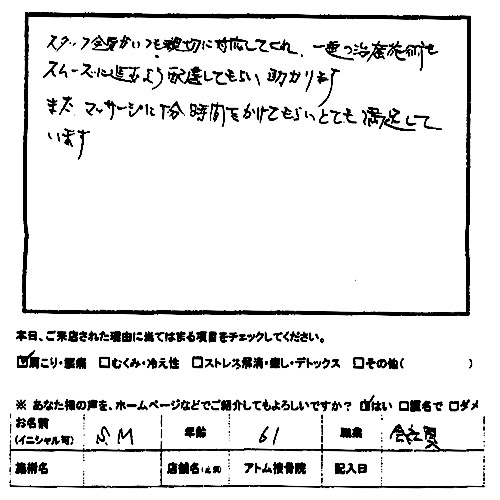 スタッフ全員がいつも親切に対応してくれ、一連の治療施術も
スムーズに進むよう配慮してもらい助かります
また マッサージに十分時間をかけてもらいとても満足して
います
本日、ご来店された理由に当てはまる項目をチェックしてください。
☑肩こり・腰痛 □むくみ・冷え性 □ストレス解消・癒し・デトックス □その他( )
※ あなた様の声を、ホームページなどでご紹介してもよろしいですか? ☑はい □匿名で □ダメ
お名前 (イニシャル可) S.M 年齢 61 職業 会社員
施術名 店舗名 アトム接骨院 記入日